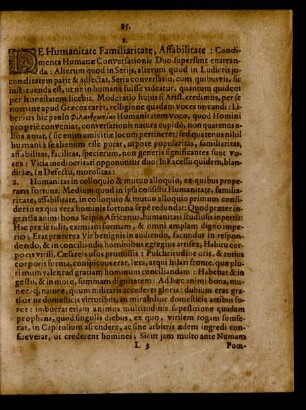 85.
I.
DE Humanitate Familiaritate, Affabilitate: Condi-
menta Humanæ Conversationis Duo supersunt enarran-
da: Alterum quod in Serijs, alterum quod in Ludicris ju-
cunditatem parit & adfectat. Seria conversatio, cum quibusvis, sic
instituenda est, ut ne in humana fuisse videatur, quantum quidem
per honestatem licebit. Moderatio hujus si Arist. credimus, per se
nomine apud Græcos caret, religione quadam voces novandi: Li-
berius hic paulo Humanitatem voco, quod Homini
propriè conveniat, conversationis natura cupido, non quarenus a-
lios amat, (sic enim amicitiæ locum pertineret) sed quatenus nihil
humani à se alienum esse putat, utpote popularitas, familiaritas,
affabilitas, facilitas, species sunt, non generis significantes sunt vo-
ces: Vitia mediocritati opponuntur duo: In Excessu quidem, blan-
ditiæ, In Defectu, morositas:
2. Humanitas in colloquio & mutuo alloquio, ex quibus prope-
rans fortuna. Medium quod in ipsa consistit Humanitate, familiari-
tate, affabilitate, in colloquio & mutuo alloquio primum censti-
dero ex quo vera hominis fortuna sæpè dependeat: Quod præter in-
gens animi bona Scipio Africanus, humanitati studiosis impertit.
Hic præ se tulit, eximiam formam, & omni amplam digno impe-
rio; Erat præterea Vir benignis in audiendo, facundus in respon-
dendo, & in conciliandis hominibus egregius artifex; Habitu cor-
poris virili, Cæsare is usus promissis: Pulchritudine oris, & totius
corporis forma, conspicuus erat, læta, atque hilari fronte, quæ plu-
rimum valent ad gratiam hominum conciliandum: Habebat & in
gestu, & in more, summam dignitatem: Ad hæc animi bona, mu-
nerque naturæ, quum militaris accederet gloria; dubium erat gra-
tior ne domesticis virtutibus, an mirabilior domesticis artibus fo-
ret: imbuerat etiam animos multitudinis superstitione quadam
prophana, quod singulis diebus, ex quo, virilem togam sumse-
rat, in Capitolium ascendere, ac sine arbitris ædem ingredi con-
sueverat, ut crederent homines; Sicut jam multo ante Numam
L 3
Pom-